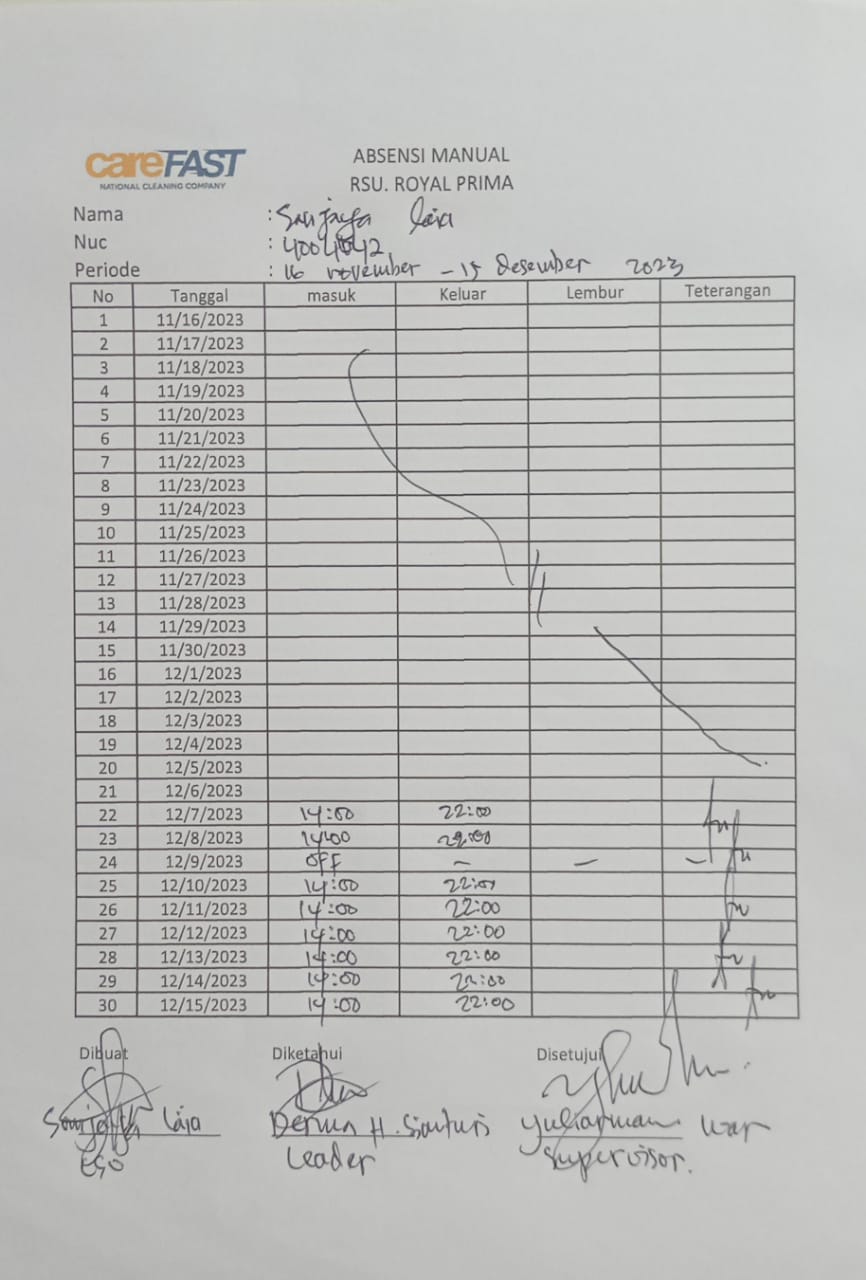 careFAST
NATIONAL CLEANING COMPANY
ABSENSI MANUAL
RSU. ROYAL PRIMA
Nama : Sanjaya laia
Nuc : 4004042
Periode : 16 november - 15 Desember 2023
No Tanggal masuk Keluar Lembur Teterangan
1 11/16/2023
2 11/17/2023
3 11/18/2023
4 11/19/2023
5 11/20/2023
6 11/21/2023
7 11/22/2023
8 11/23/2023
9 11/24/2023
10 11/25/2023
11 11/26/2023
12 11/27/2023
13 11/28/2023
14 11/29/2023
15 11/30/2023
16 12/1/2023
17 12/2/2023
18 12/3/2023
19 12/4/2023
20 12/5/2023
21 12/6/2023
22 12/7/2023 14:00 22:00
23 12/8/2023 14:00 22:00
24 12/9/2023 OFF - - -
25 12/10/2023 14:00 22:00
26 12/11/2023 14:00 22:00
27 12/12/2023 14:00 22:00
28 12/13/2023 14:00 22:00
29 12/14/2023 14:00 22:00
30 12/15/2023 14:00 22:00
Dibuat Diketahui Disetujui
Sanjaya laia H. Sianturi Yuliarman
Leader Supervisor.